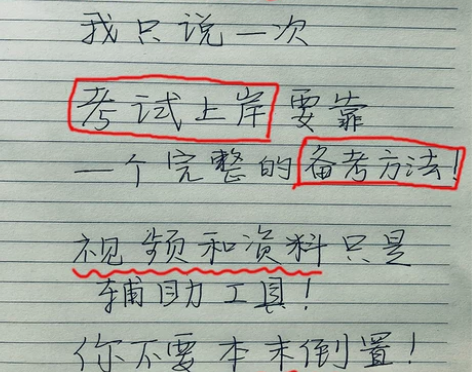 我只说一次
考试上岸要靠
一个完整的备考方法!
视频和资料只是
辅助工具!
你不要本末倒置!